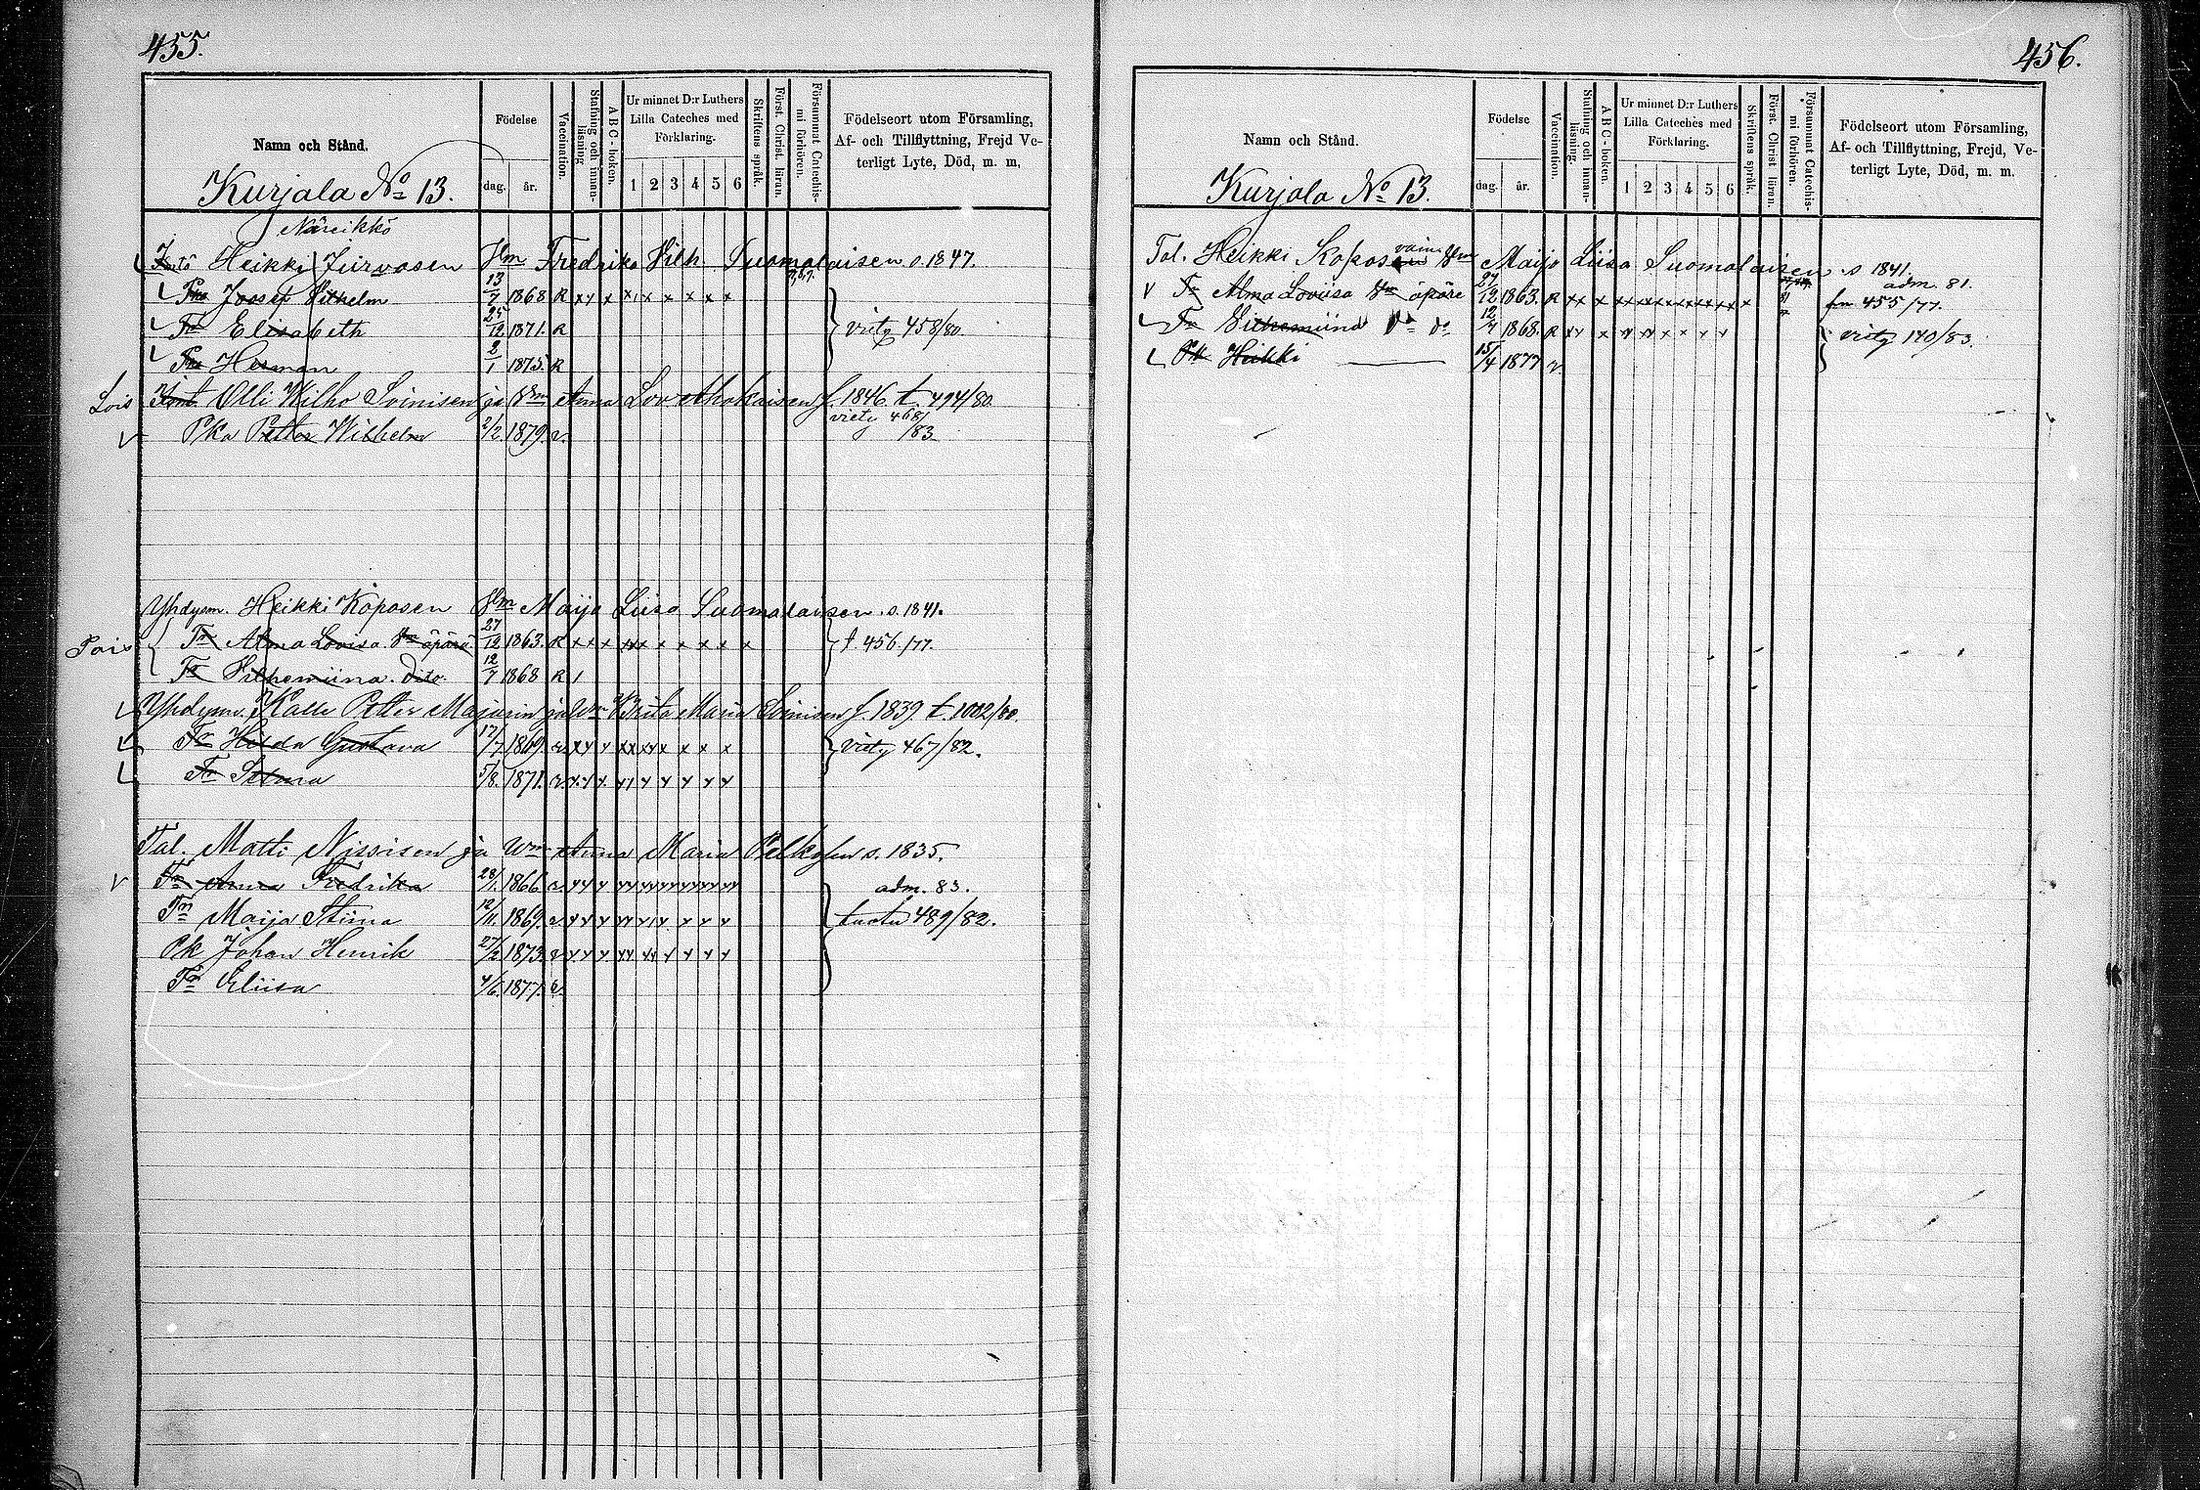 455.
Namn och Stånd.
Födelse
dag. år.
Vaccination.
Stafning och innan-läsning
A B C - boken.
Ur minnet D:r Luthers Lilla Cateches med Förklaring.
1 2 3 4 5 6
Skriftens språk.
Först. Christ. läran.
Försummat Catechis-mi förhören.
Födelseort utom Församling, Af- och Tillflyttning, Frejd Ve-terligt Lyte, Död, m. m.
Kurjala No 13.
Näreikkö
Heikki Jürvasen Hm Fredrika Vilh. Suomalaisen s. 1847.
Pka Josef Vilhelm 13/7 1868 R x y x x x x x x x
Tr Elisabeth 25/12 1871. R viety 458/80.
Pka Herman 2/1 1875. R
Lois Olli Wilho Soinisen ja Vm Anna Lov Ahokaisen f. 1846 t. 494/80.
v Pka Petter Wilhelm 2/2 1879. v. viety 468/83
Yhdysm. Heikki Koposen Hm Maija Liisa Suomalaisen s. 1841.
Pois Tr Alma Lovisa Vm äpärä 27/12 1863. R x x x x x x x x x x x t. 456/77.
Tr Vilhemiina Dito 12/7 1868 R 1
Yhdysm. Kalle Petter Majurin ja Vm Brita Maria Soinisen f. 1839 t. 1002/80.
Tr Hilda Gustava 17/7 1869. v. x y y x x x y x x x x viety 467/82.
Tr Selma 5/8. 1871. v. y. y y. y 1 y y y y y
Tal. Matti Nissisen ja Wm Anna Maria Pelkosen s. 1835.
v Tr Anna Fredrika 28/1 1866 v. y y y y y y y y y y y y y y y adm. 83.
Tr Maija Stiina 12/11. 1869. v. y y y y y y y y y y tuotu 489/82.
Pk Johan Henrik 27/2 1873. v y y y y y y y y y y y
Tr Eliisa 4/6. 1877. v.
456.
Namn och Stånd.
Födelse
dag. år.
Vaccination.
Stafning och innan-läsning.
A B C - boken.
Ur minnet D:r Luthers Lilla Cateches med Förklaring.
1 2 3 4 5 6
Skriftens språk.
Först. Christ läran.
Försummat Catechis-mi förhören.
Födelseort utom Församling, Af- och Tillflyttning, Frejd, Ve-terligt Lyte, Död, m. m.
Kurjala No 13.
Tal. Heikki Koposen vaim Maija Liisa Suomalaisen s 1841.
v Tr Alma Loviisa Vm äpäre 27/12 1863. R x x x x x x x x x x x x x x adm. 81. fm 455/77.
Tr Vilhemiina Do do 12/7 1868. R y y x y y y x x y y viety 140/83.
Pk Heikki 15/4 1877 v.